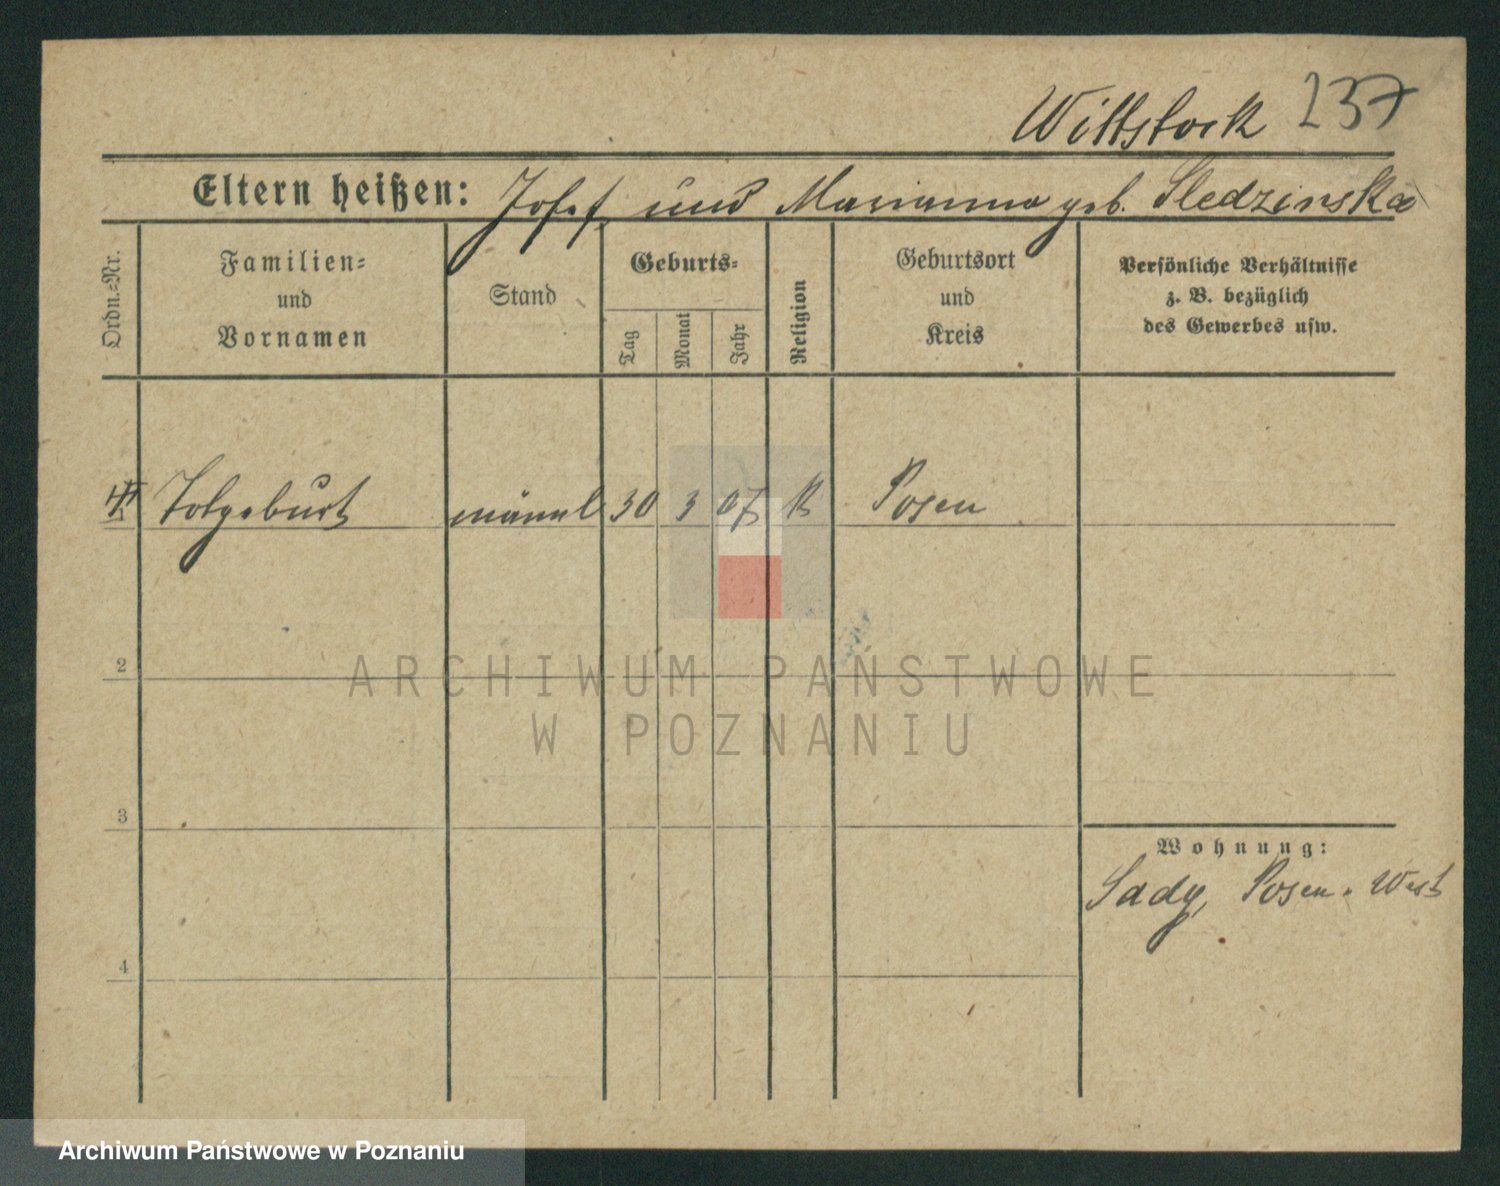 Wittstock 237
Eltern heißen: Josef und Marianna geb. Sledzinska
Ordn.-Nr.
Familien-
und
Vornamen
Stand
Geburts-
Tag
Monat
Jahr
Religion
Geburtsort
und
Kreis
Persönliche Verhältnisse
z. B. bezüglich
des Gewerbes usw.
Totgeburt männl 30 3 07 K Posen
2
ARCHIWUM PAŃSTWOWE
W POZNANIU
3
Wohnung:
Sady, Posen-West
4
Archiwum Państwowe w Poznaniu